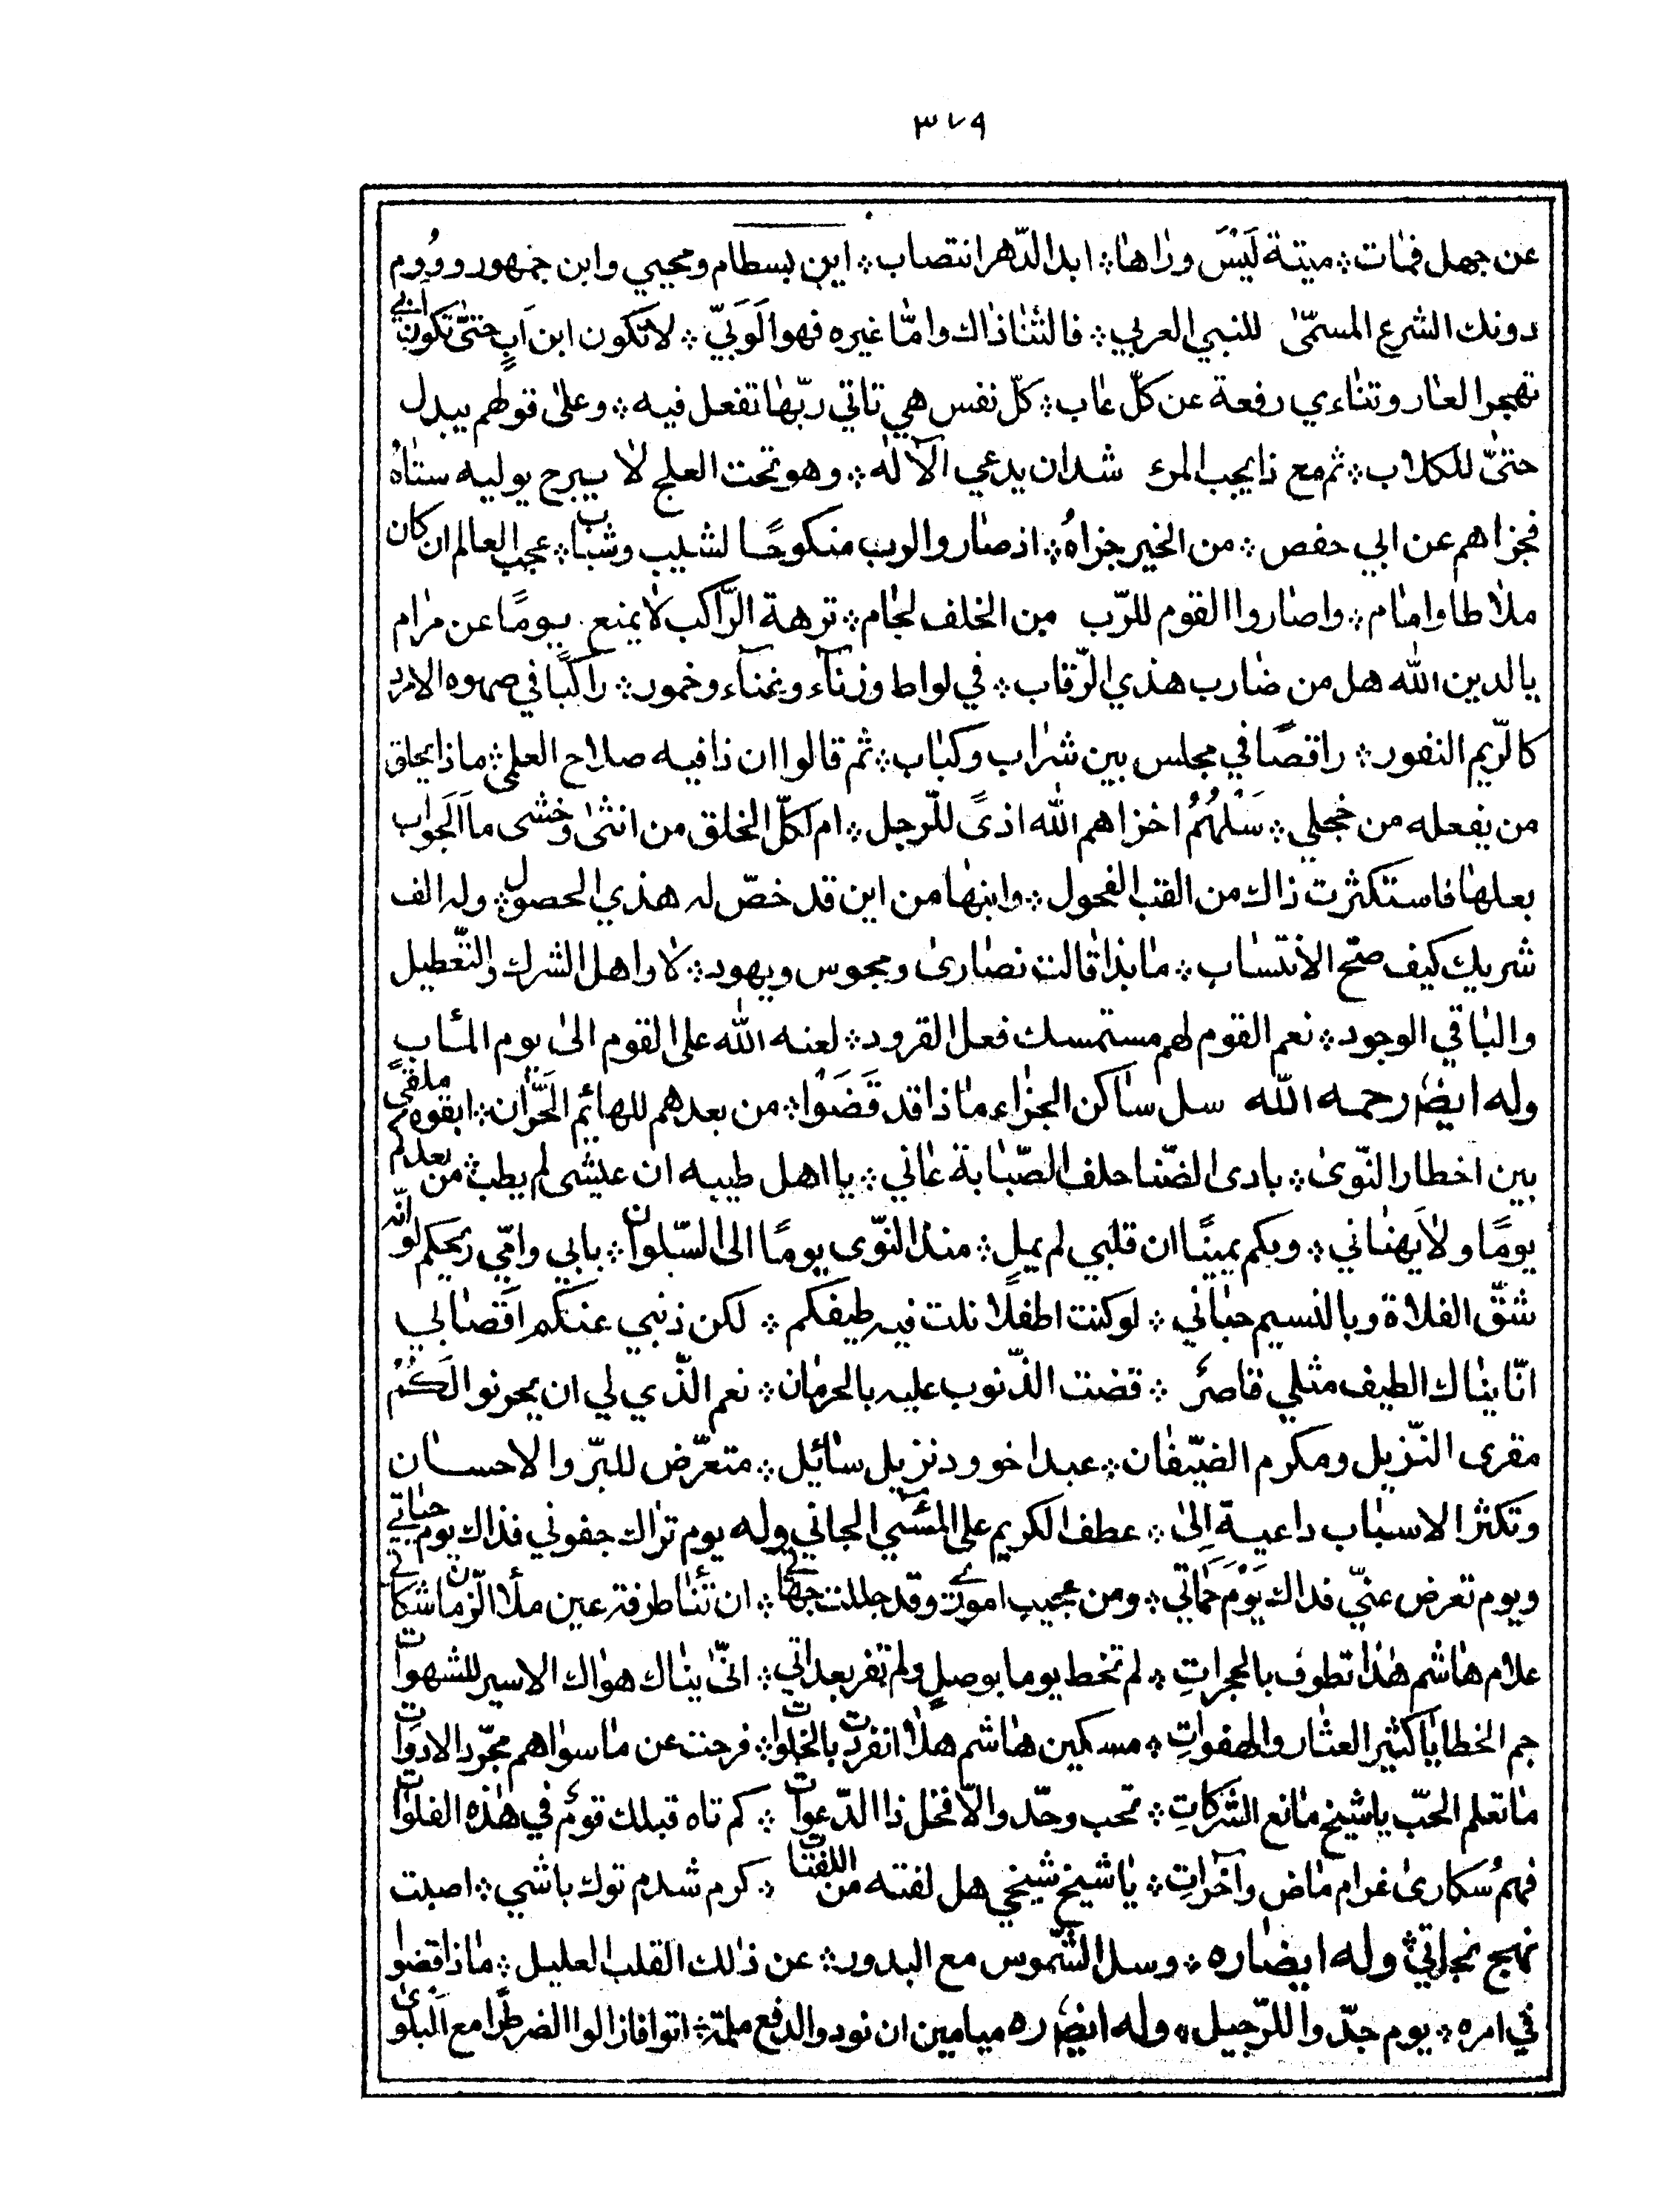 ٣٧٩
عن جهل فمات ؞ ميتة لَيْسَ وراها ؞ ابد الدّهر انتصاب ؞ اين بسطام ومحيي وابن جمهور ورُوم
دونك الشرع المسمّىٰ للنبي العربي ؞ فالثنا ذاك وامّا غيره فهو الَوَبيّ ؞ لا تكون ابن اَبٍ حتىّٰ تكون اَبي
تهجر العار وتناءي رفعة عن كلّ عاب ؞ كلّ نفس هي تاتي ربّها تفعل فيه ؞ وعلىٰ قولهم يبدل
حتىّٰ للكلاب ؞ ثم مع ذا يجب المرء شدان يدعي الآلٰه ؞ وهو تحت العلج لا يبرح يوليه ستاهُ
فجزاهم عن ابي حفص ؞ من الخير جزاهُ ؞ اذ صار والرب منكوحًا لشيب وشباب ؞ عجب العالم ان كان
ملاطا وامام ؞ واصاروا القوم للرّب من الخلف لجام ؞ ترهة الرّاكب لا يمنع يومًا عن مرام
يا لدين الله هل من ضارب هذي الرّقاب ؞ في لواط وزنآء وغنآء وخمور ؞ راكبًا في صهوه الامرد
كالرّيم النفور ؞ راقصًا في مجلس بين شراب وكباب ؞ ثم قالوا ان ذا فيه صلاح العلمي ؞ ماذا يحلق
من يفعله من خجلي ؞ سَلْهُمُ اخزاهم الله اذىً للّرجل ؞ ام لكلّ الخلق من انثىٰ وخنثى ما الَجواب
بعلها فاستكثرت ذاك من القب الفحول ؞ وابنها من اين قد خصّ له هذي الحصول ؞ وله الف
شريك كيف صحّ الانتساب ؞ ما بذا قالت نصارىٰ ومجوس ويهود ؞ لا واهل الشرك والتّعطيل
والباقي الوجود ؞ نعم القوم لهم مستمسك فعل القرود ؞ لعنه الله على القوم الىٰ يوم المـٔاب
وله ايضا رحمه الله سل ساكن الجزاء ماذا قد قَضَوْا ؞ من بعدهم للهائم الحَّران ؞ ابقوه ملقىً
بين اخطار النّوىٰ ؞ بادى الضّنا حلف الصّبابة عاني ؞ يا اهل طيبه ان عيشى لم يطب ؞ من بعدكم
يومًا ولا يهناني ؞ وبكم يمينًا ان قلبي لم يمل ؞ منذ النّوى يومًا الى السّلوان ؞ بابي وامّي ريحكم لو انّه
شقّ الفلاة وبالنسيم حباني ؞ لو كنت اطفلًا نلت فيه طيفكم ؞ لكن ذنبي عنكم اقصابي
انّا يناك الطيف مثلي قاصرٌ ؞ قضت الذّنوب عليه بالحرمان ؞ نعم الّذي لي ان يحرنوا لَكُمُ
مقرى النّزيل ومكرم الضيّفان ؞ عبد اخو ود نزيل سائل ؞ متعرّض للبّر والاحسان
وتكثر الاسباب داعية اِلىٰ ؞ عطف الكريم على المسئ الجاني وله يوم تراك جفوني فذاك يوم حباتي
ويوم تعرض عنّي فداك يَوْمَ حَماتي ؞ ومن عجيب امورى وقد جللت جهاتي ؞ ان تنا طرفة عين ملأ الزمان شكاتي
علام هاشم هذا تطوف بالحجراتِ ؞ لم تخط يوما بوصلٍ ولم تفر بعداتي ؞ انّىٰ يناك هواك الاسير للشهوات
جم الخطايا كثير العثار والهفواتِ ؞ مسكين هاشم هلا انفردت بالخلوات ؞ فرحت عن ما سواهم مجّرد الادوات
ما تعلم الحبّ يا شيخ مانع الشركاتِ ؞ تحب وحّد والّا فخل ذا الدّعوات ؞ كم تاه قبلك قومٌ في هذه الفلوات
فهم سُكارىٰ غرام ماض وآخراتِ ؞ يا شيخ شيخي هل لفته من اللفتات ؞ كرم شدم توك باشي ؞ اصبت
نهج نجاتي ؞ وله ايضا ره ؞ وسل الشموس مع البدور ؞ عن ذلك القلب العليل ؞ ماذا قضوا
في امره ؞ يوم جدّ واللرّحيل ؞ وله ايضا ره ميامين ان نودوا لدفع ملمة ؞ اتوا فازالوا الضر طرًّا مع البلوىٰ